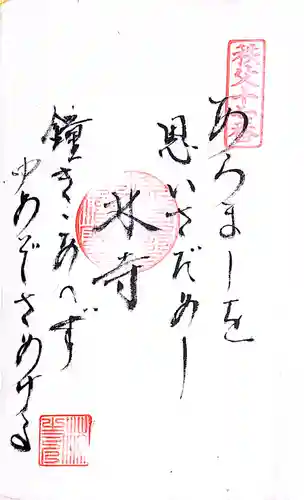 秩父十七番
あらましを
思いさだめし
林寺
鐘きゝあへず
ゆめぞさめける